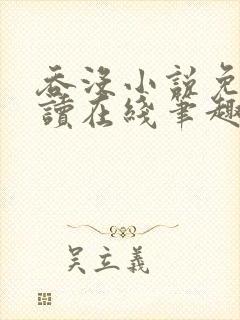 吞没小说免
讀在綫筆趣
吴立義